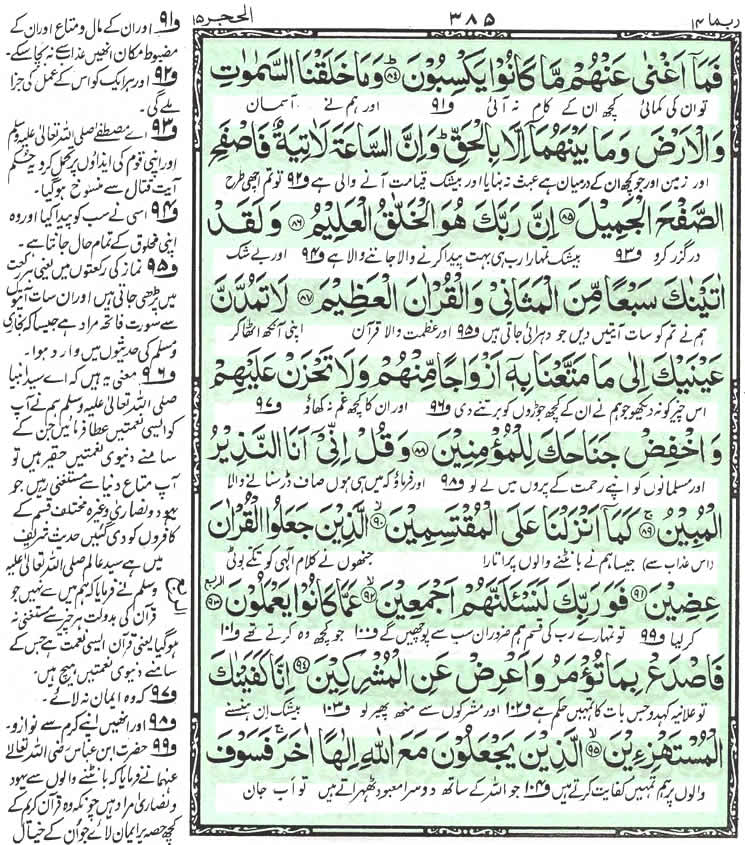 ربما ۱۴
۳۸۵
الحجر ۱۵
فَمَاۤ اَغْنٰى عَنْهُمْ مَّا كَانُوْا يَكْسِبُوْنَ ؕ﴿۸۴﴾ وَمَا خَلَقْنَا السَّمٰوٰتِ
تو ان کی کمائی کچھ ان کے کام نہ آئی و۹۱ اور ہم نے آسمان
وَالْاَرْضَ وَمَا بَيْنَهُمَاۤ اِلَّا بِالْحَقِّ ؕ وَاِنَّ السَّاعَةَ لَاٰتِيَةٌ فَاصْفَحِ
اور زمین اور جو کچھ ان کے درمیان ہے عبث نہ بنایا اور بیشک قیامت آنے والی ہے و۹۲ تو تم اچھی طرح
الصَّفْحَ الْجَمِيْلَ ﴿۸۵﴾ اِنَّ رَبَّكَ هُوَ الْخَلّٰقُ الْعَلِيْمُ ﴿۸۶﴾ وَلَقَدْ
درگزر کرو و۹۳ بیشک تمہارا رب ہی بہت پیدا کرنے والا جاننے والا ہے و۹۴ اور بے شک
اٰتَيْنٰكَ سَبْعًا مِّنَ الْمَثَانِیْ وَالْقُرْاٰنَ الْعَظِيْمَ ﴿۸۷﴾ لَا تَمُدَّنَّ
ہم نے تم کو سات آیتیں دیں جو دہرائی جاتی ہیں و۹۵ اور عظمت والا قرآن اپنی آنکھ اٹھا کر
عَيْنَيْكَ اِلٰى مَا مَتَّعْنَا بِهٖۤ اَزْوَاجًا مِّنْهُمْ وَلَا تَحْزَنْ عَلَيْهِمْ
اس چیز کو نہ دیکھو جو ہم نے ان کے کچھ جوڑوں کو برتنے دی و۹۶ اور ان کا کچھ غم نہ کھاؤ و۹۷
وَاخْفِضْ جَنَاحَكَ لِلْمُؤْمِنِيْنَ ﴿۸۸﴾ وَقُلْ اِنِّیْۤ اَنَا النَّذِيْرُ
اور مسلمانوں کو اپنے رحمت کے پروں میں لے لو و۹۸ اور فرماؤ کہ میں ہی ہوں صاف ڈر سنانے والا
الْمُبِيْنُ ﴿۸۹﴾ كَمَاۤ اَنْزَلْنَا عَلَى الْمُقْتَسِمِيْنَ ﴿۹۰﴾ الَّذِيْنَ جَعَلُوا الْقُرْاٰنَ
(اس عذاب سے) جیسا ہم نے بانٹنے والوں پر اتارا جنھوں نے کلام الٰہی کو تکے بوٹی
عِضِيْنَ ﴿۹۱﴾ فَوَرَبِّكَ لَنَسْئَلَنَّهُمْ اَجْمَعِيْنَ ﴿۹۲﴾ عَمَّا كَانُوْا يَعْمَلُوْنَ ﴿۹۳﴾
کر لیا و۹۹ تو تمہارے رب کی قسم ہم ضرور ان سب سے پوچھیں گے و۱۰۰ جو کچھ وہ کرتے تھے و۱۰۱
فَاصْدَعْ بِمَا تُؤْمَرُ وَاَعْرِضْ عَنِ الْمُشْرِكِيْنَ ﴿۹۴﴾ اِنَّا كَفَيْنٰكَ
تو علانیہ کہہ دو جس بات کا تمہیں حکم ہے و۱۰۲ اور مشرکوں سے منھ پھیر لو و۱۰۳ بیشک ان ہنسنے
الْمُسْتَهْزِءِيْنَ ﴿۹۵﴾ الَّذِيْنَ يَجْعَلُوْنَ مَعَ اللّٰهِ اِلٰهًا اٰخَرَ ۚ فَسَوْفَ
والوں پر ہم تمہیں کفایت کرتے ہیں و۱۰۴ جو اللہ کے ساتھ دوسرا معبود ٹھہراتے ہیں تو اب جان
و۹۱ اور ان کے مال و متاع اور ان کے
مضبوط مکان انھیں عذاب سے نہ بچا سکے۔
و۹۲ اور ہر ایک کو اس کے عمل کی جزا
ملے گی۔
و۹۳ اے مصطفےٰ صلی اللہ تعالیٰ علیہ وسلم
اور اپنی قوم کی ایذاؤں پر تحمل کرو یہ حکم
آیت قتال سے منسوخ ہو گیا۔
و۹۴ اسی نے سب کو پیدا کیا اور وہ
اپنی مخلوق کے تمام حال جانتا ہے۔
و۹۵ نماز کی رکعتوں میں یعنی ہر رکعت
میں پڑھی جاتی ہیں اور ان سات آیتوں
سے سورت فاتحہ مراد ہے جیسا کہ بخاری
و مسلم کی حدیثوں میں وارد ہوا۔
و۹۶ معنی یہ ہیں کہ اے سید انبیا
صلی اللہ تعالیٰ علیہ وسلم ہم نے آپ
کو ایسی نعمتیں عطا فرمائیں جن کے
سامنے دنیوی نعمتیں حقیر ہیں تو
آپ متاع دنیا سے مستغنی رہیں جو
یہود و نصاریٰ وغیرہ مختلف قسم کے
کافروں کو دی گئیں حدیث شریف
میں ہے سید عالم صلی اللہ تعالیٰ علیہ
وسلم نے فرمایا کہ ہم میں سے نہیں جو
قرآن کی بدولت ہر چیز سے مستغنی نہ
ہو گیا یعنی قرآن ایسی نعمت ہے جس کے
سامنے دنیوی نعمتیں ہیچ ہیں۔
و۹۷ کہ وہ ایمان نہ لائے۔
و۹۸ اور انھیں اپنے کرم سے نوازو۔
و۹۹ حضرت ابن عباس رضی اللہ تعالےٰ
عنہما نے فرمایا کہ بانٹنے والوں سے یہود
و نصاریٰ مراد ہیں چونکہ وہ قرآن کریم کے
کچھ حصہ پر ایمان لائے جو ان کے خیال